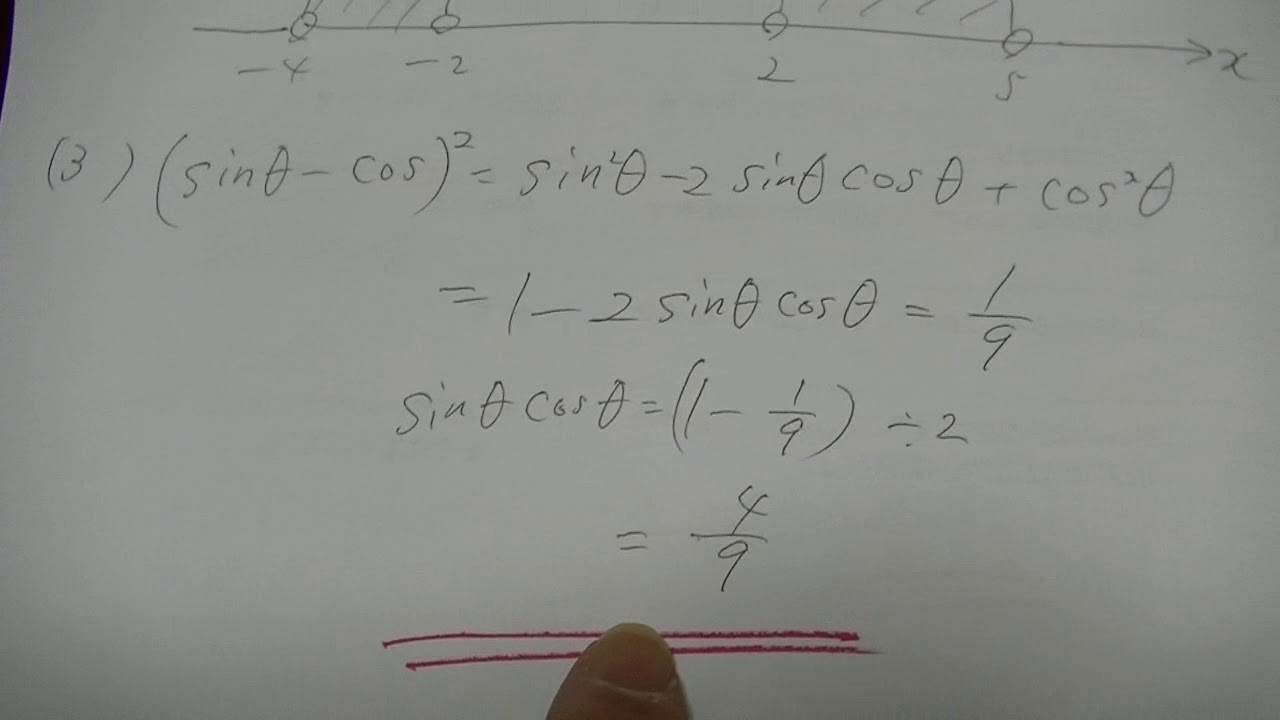 -4 -2 2 5 x
(3) (sinθ - cos)² = sin²θ - 2 sinθ cosθ + cos²θ
= 1 - 2 sinθ cosθ = 1/9
sinθ cosθ = (1 - 1/9) ÷ 2
= 4/9